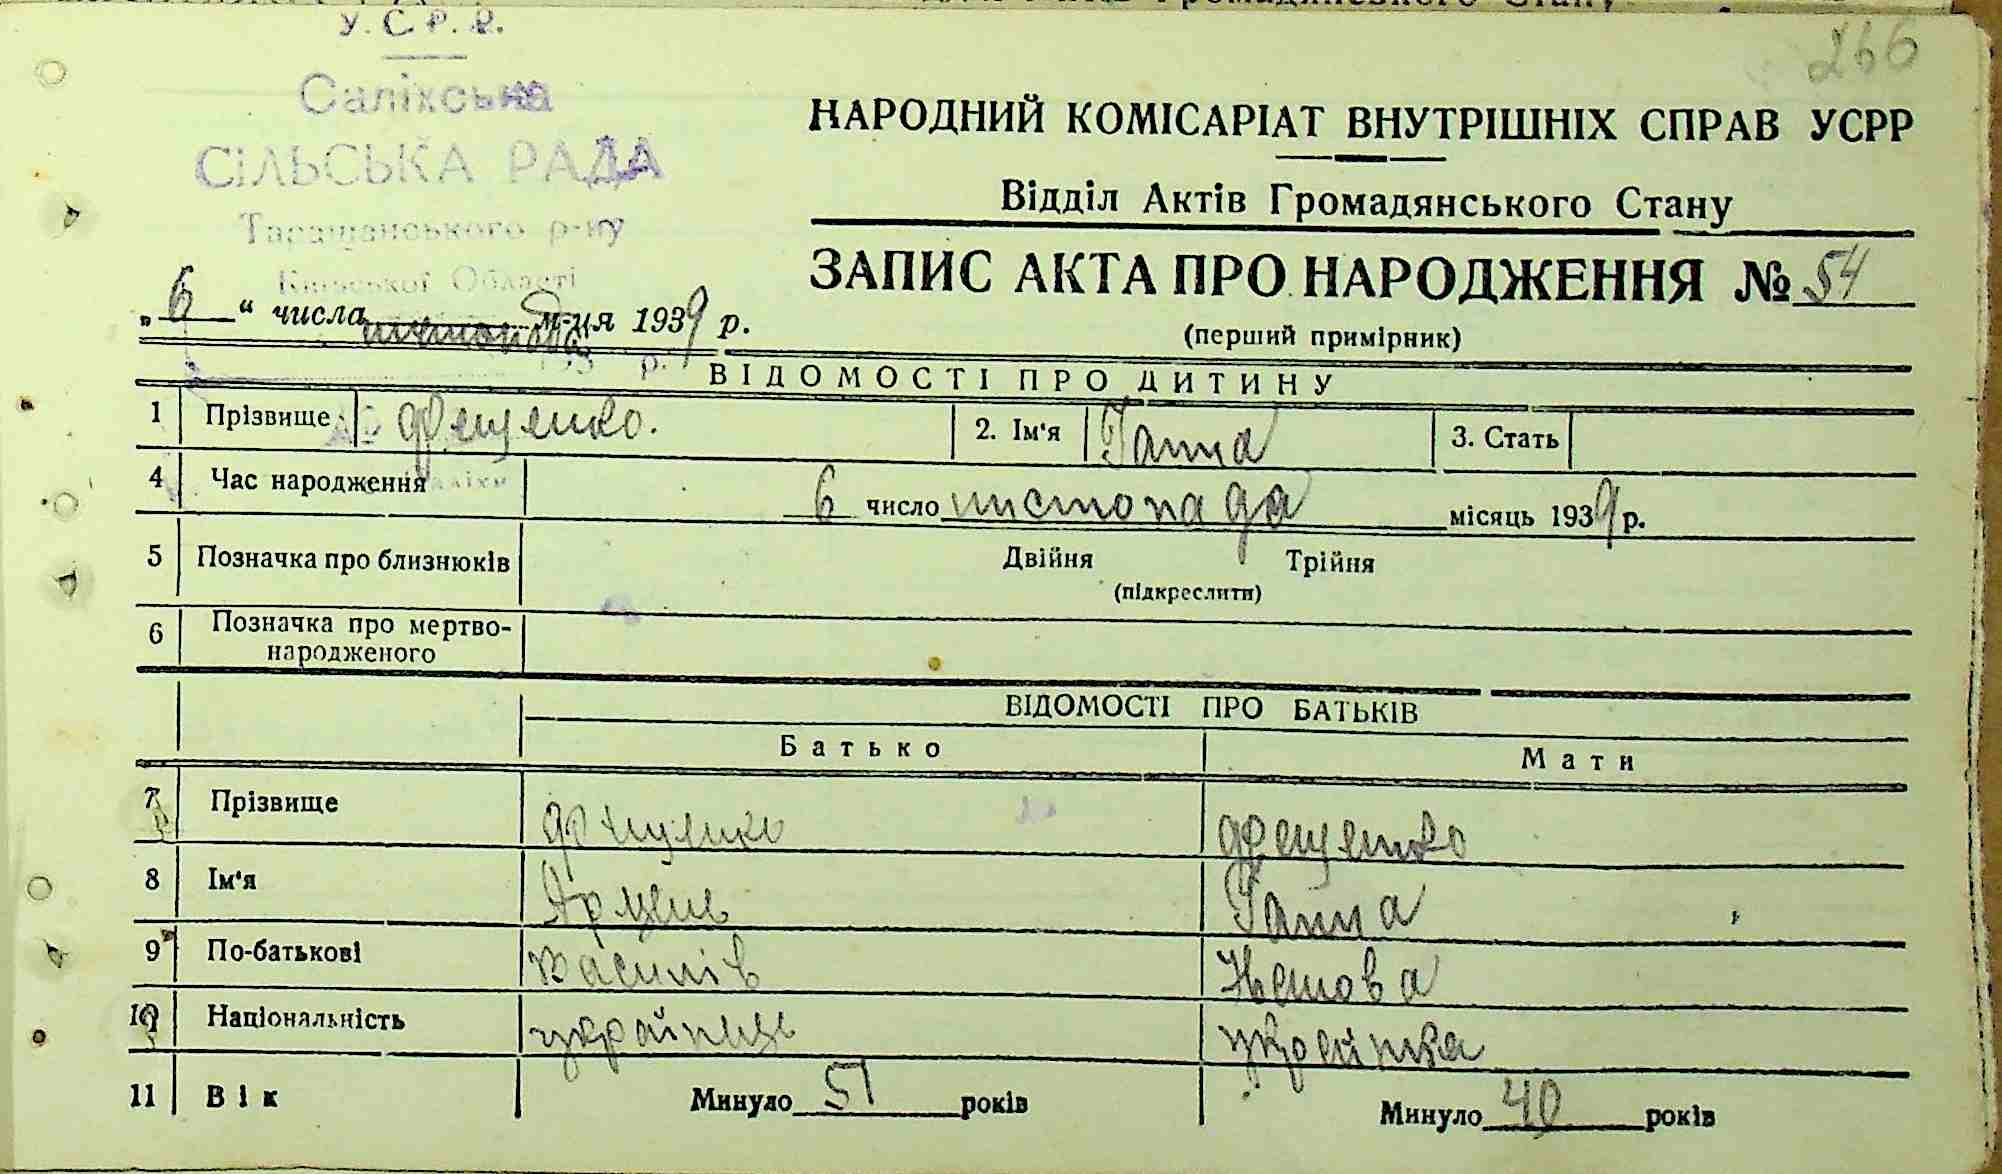 266
У.С.Р.Р.
Саліхська
СІЛЬСЬКА РАДА
Таращанського р-ну
Київської Області
НАРОДНИЙ КОМІСАРІАТ ВНУТРІШНІХ СПРАВ УСРР
Відділ Актів Громадянського Стану
ЗАПИС АКТА ПРО НАРОДЖЕННЯ № 54
(перший примірник)
„6“ числа листопада м-ця 1939 р.
ВІДОМОСТІ ПРО ДИТИНУ
1 Прізвище Фещенко. 2. Ім'я Ганна 3. Стать
4 Час народження 6 число листопада місяць 1939 р.
5 Позначка про близнюків Двійня Трійня
(підкреслити)
6 Позначка про мертво-
народженого
ВІДОМОСТІ ПРО БАТЬКІВ
Батько Мати
7 Прізвище Фещенко Фещенко
8 Ім'я Ганна
9 По-батькові Василів
10 Національність українець українка
11 Вік Минуло 51 років Минуло 40 років